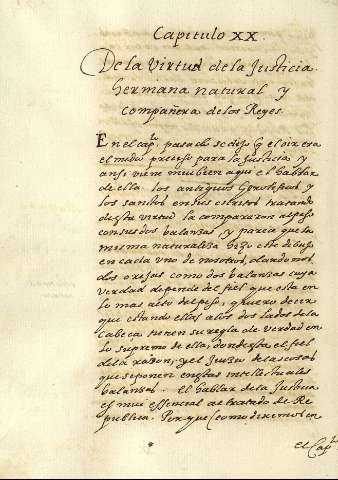 Capitulo XX.
De la Virtud de la Justicia.
hermana natural y
compañera de los Reyes.
En el cap.º pasado se dijo q el oir era
el medio preciso para la Justicia y
ansi viene mui bien aqui el hablar
de ella. los antiguos y
los santos en sus escritos tratando
desta virtud la compararon al peso
con sus dos balanzas, y parece que la
misma naturaleza hizo este dibuxo
en cada uno de nosotros, dandonos
dos orejas como dos balanzas cuya
verdad depende del fiel que esta en
lo mas alto del peso, y quiero decir
que estando ellas a los dos lados de la
Cabeça tienen su regla de verdad en
lo supremo de ella, donde esta el fiel
de la razon, y el Juizio de las cosas
que se ponen en estas intelectuales
balanzas. El hablar de la Justicia
es mui essencial al tratado de Re
publica. Porque (como diremos en
el Cap.º